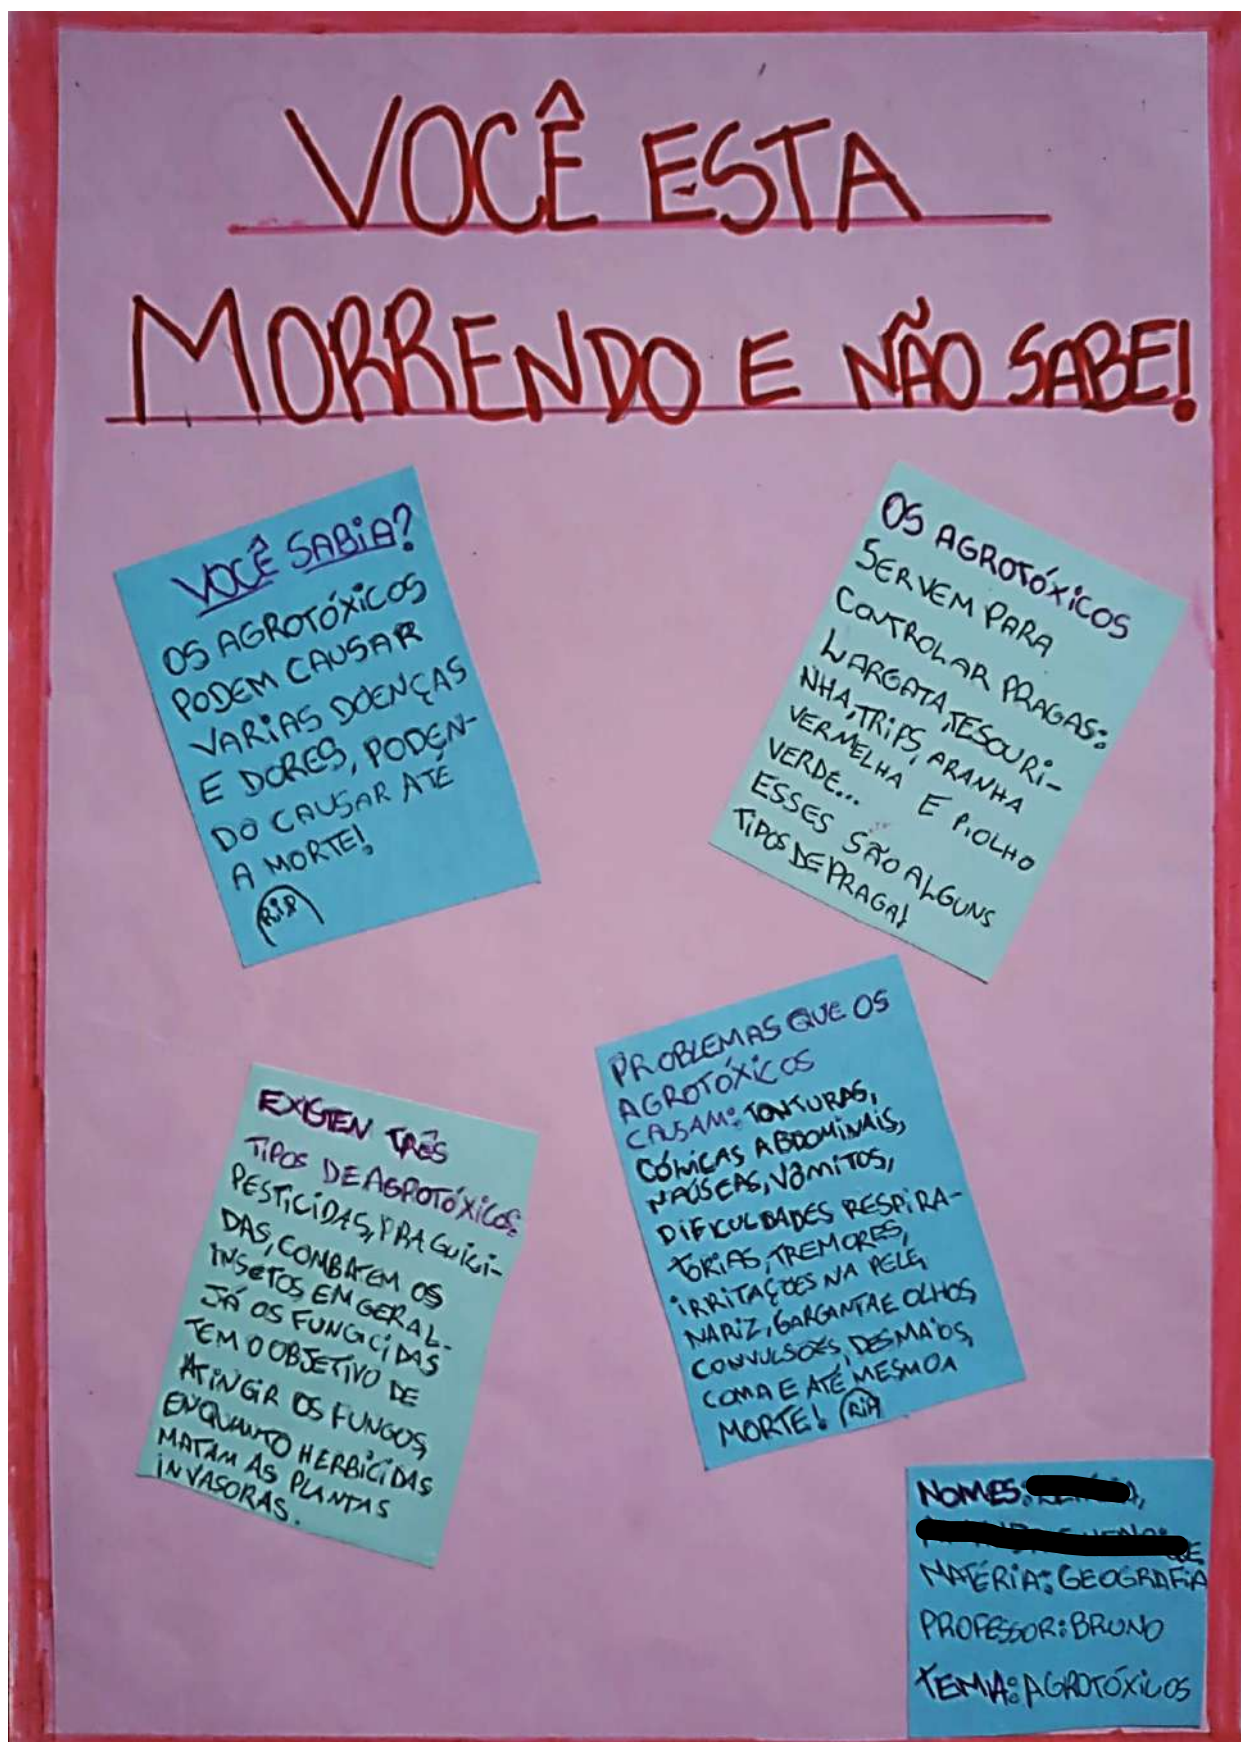 VOCÊ ESTA
MORRENDO E NÃO SABE!
VOCÊ SABiA?
OS AGROTÓXiCOS
PODEM CAUSAR
VARiAS DOENÇAS
E DORES, PODEN-
DO CAUSAR ATÉ
A MORTE!
RiP
OS AGROTÓXiCOS
SERVEM PARA
CONTROLAR PRAGAS:
LARGATA, TESOURi-
NHA, TRiPS, ARANHA
VERMELHA E PiOLHO
VERDE...
ESSES SÃO ALGUNS
TiPOS DE PRAGA!
EXiSTEN TRÊS
TiPOS DE AGROTÓXiCOS:
PESTiCiDAS, PRAGUiCi-
DAS, COMBATEM OS
INSETOS EM GERAL.
JÁ OS FUNGiCiDAS
TEM O OBJETiVO DE
ATiNGiR OS FUNGOS,
ENQUANTO HERBiCiDAS
MATAM AS PLANTAS
iNVASORAS.
PROBLEMAS QUE OS
AGROTÓXiCOS
CAUSAM: TONTURAS,
CÓLiCAS ABDOMiNAiS,
NAÚSEAS, VÔMiTOS,
DiFiCULDADES RESPiRA-
TÓRiAS, TREMORES,
iRRiTAÇÕES NA PELE,
NARiZ, GARGANTA E OLHOS,
CONVULSÕES, DESMAiOS,
COMA E ATÉ MESMO A
MORTE! RiP
NOMES:
MATÉRiA: GEOGRAFiA
PROFESSOR: BRUNO
TEMA: AGROTÓXiCOS